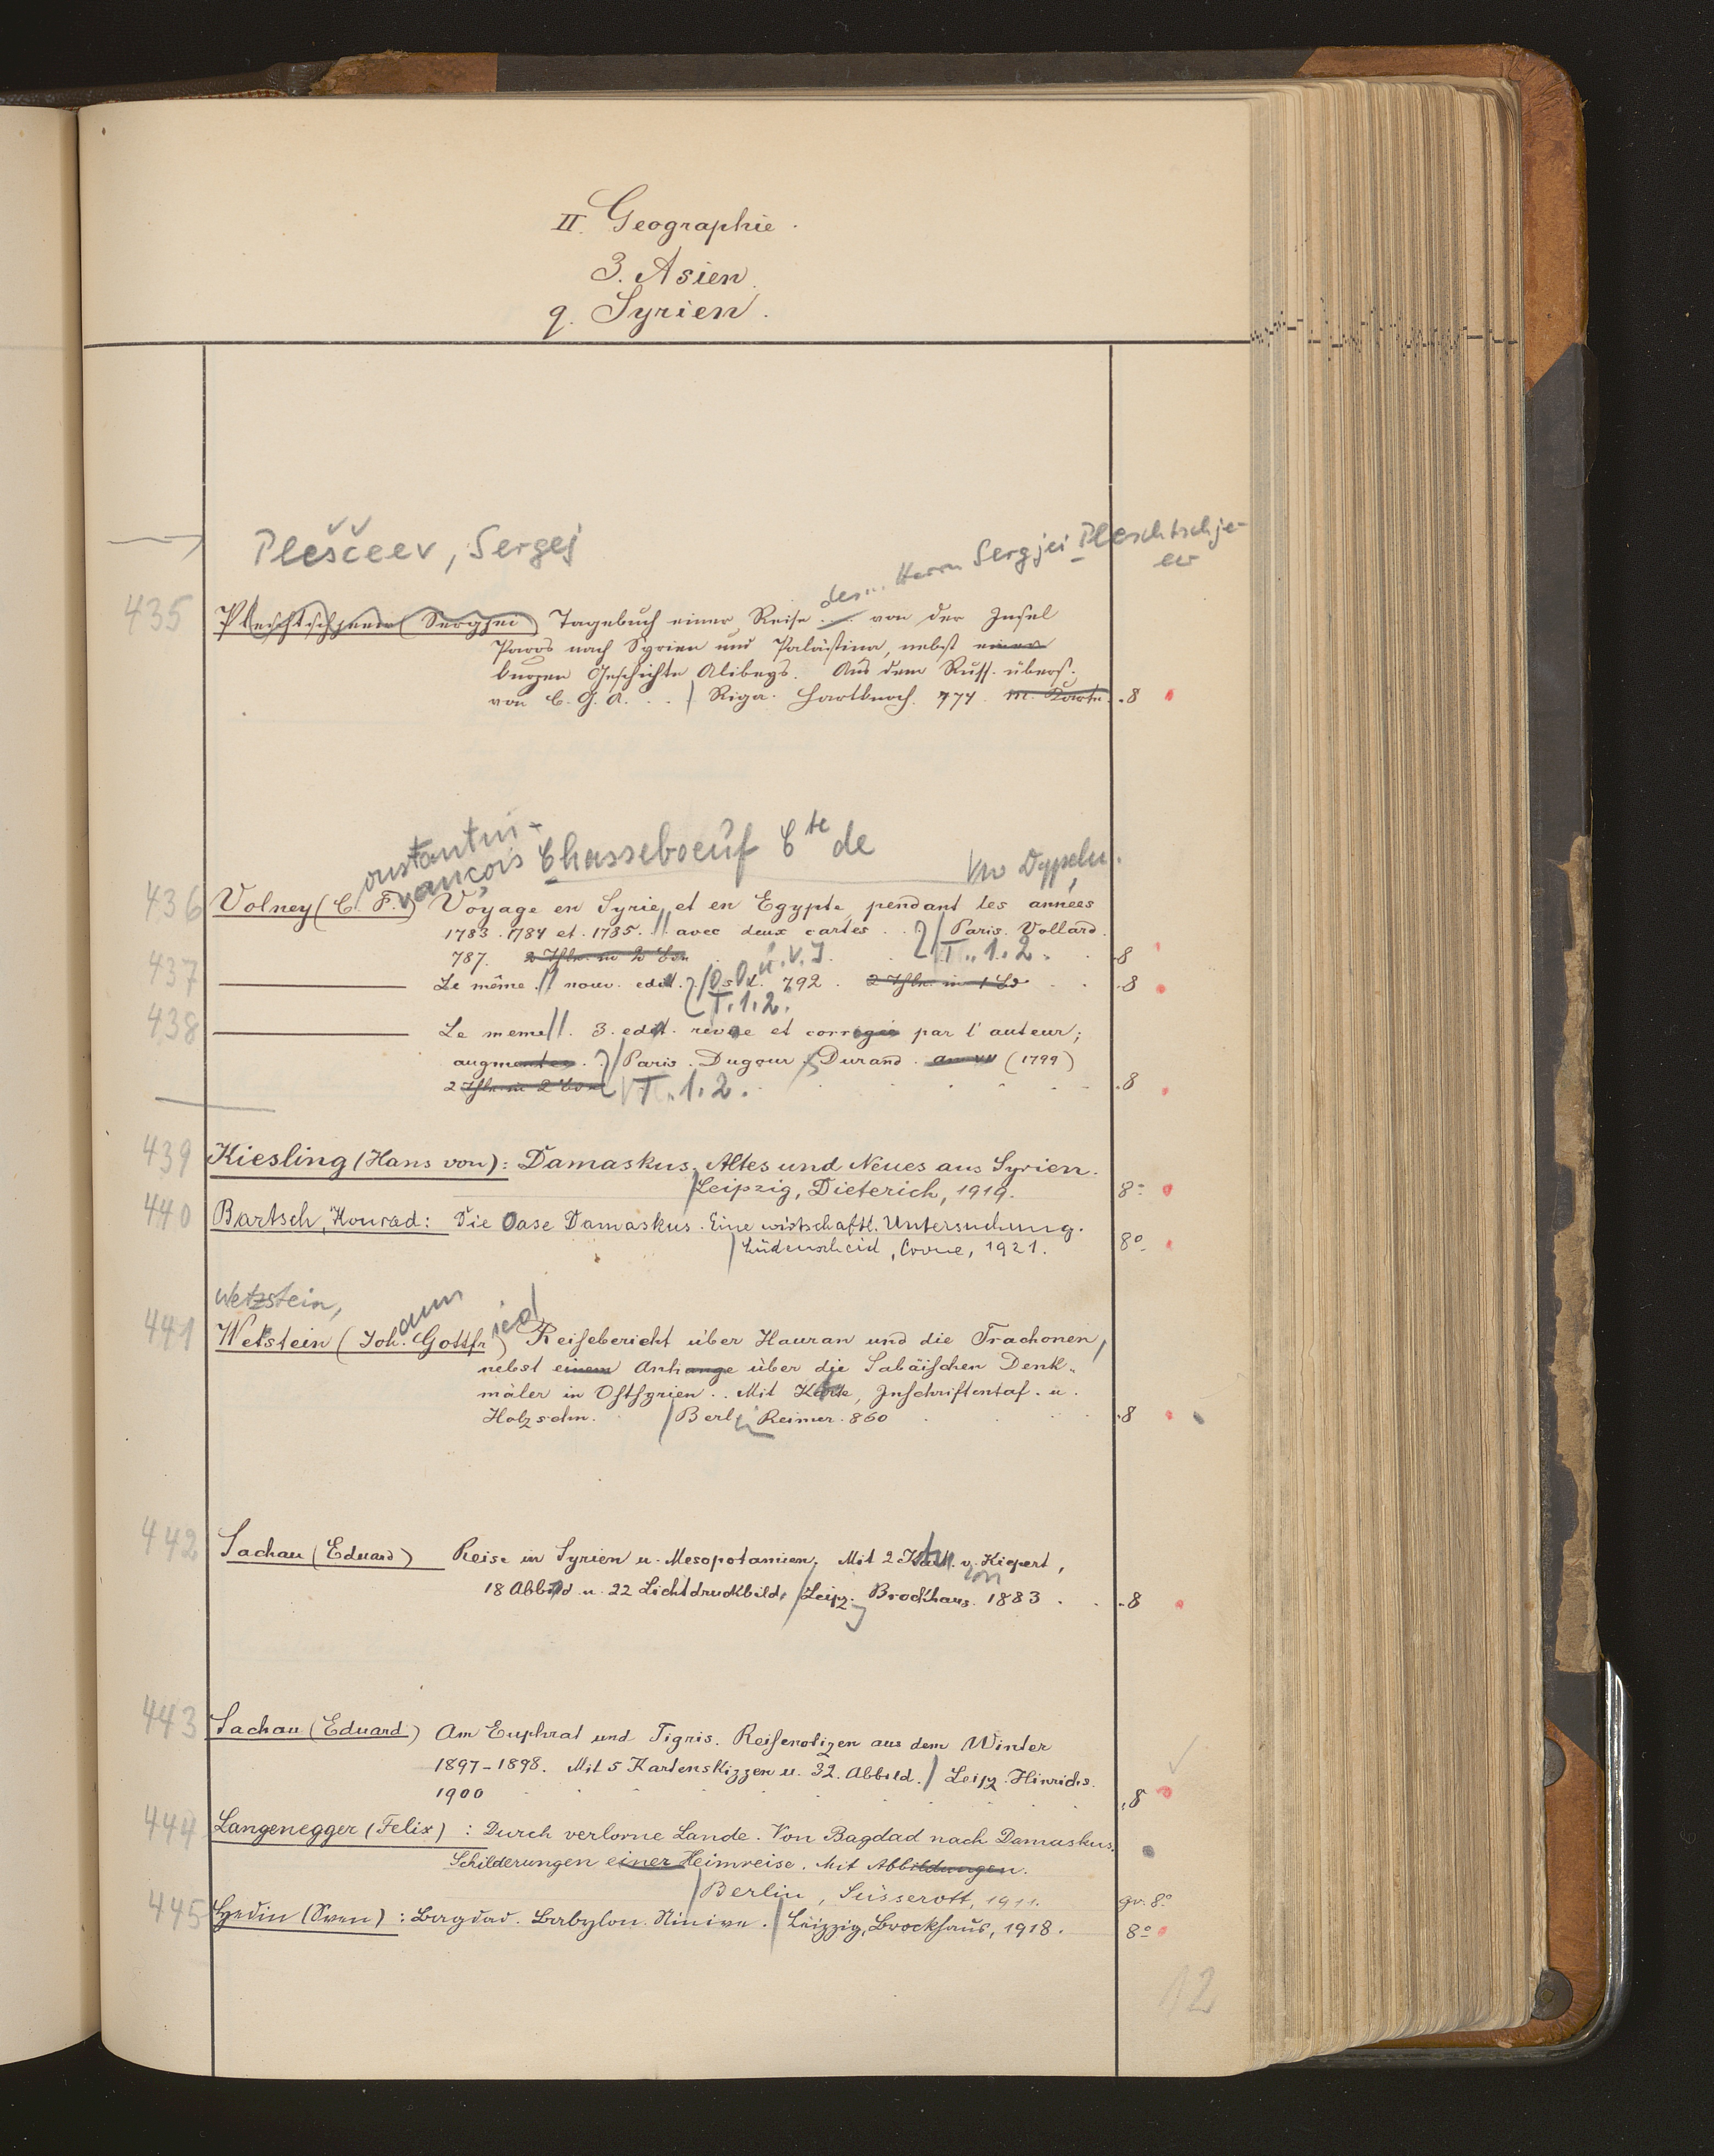 II. Geographie.
3. Asien.
q. Syrien.
Pleščeev, Sergej
des... Herrn Sergjei Pleschtschje-
ew
435 Pleschtschjeew (Sergjei) Tagebuch einer Reise ... von der Insel
Paros nach Syrien und Palästina, nebst einer
kurzen Geschichte Alibeys. Aus dem Russ. übers.
von C. G. A. . . / Riga. Hartknoch. 774. m. Karte. .8
onstantin-
rançois Chasseboeuf Cte de
436 Volney (C. F.) Voyage en Syrie et en Egypte, pendant les années
1783. 1784 et. 1785. // avec deux cartes . . / Paris. Volland.
787. T. 1. 2. .8
437 Le même. // nouv. edit. / O. O. u. V. 792. .8
T. 1. 2.
438 Le meme //. 3. edit. revue et corrigée par l'auteur;
augmentée. / Paris. Dugour / Durand. an VII (1799)
T. 1. 2. .8
439 Kiesling (Hans von): Damaskus. Altes und Neues aus Syrien.
/ Leipzig, Dieterich, 1919. 8°
440 Bartsch, Konrad: Die Oase Damaskus. Eine wirtschaftl. Untersuchung.
/ Lüdenscheid, Crone, 1921. 8°
Wetzstein,
441 Wetstein (Johann Gottfried) Reisebericht über Hauran und die Trachonen,
nebst einem Anhange über die Sabäischen Denk-
mäler in Ostsyrien. . Mit Karte, Inschriftentaf. u.
Holzschn. / Berlin Reimer. 860 .8
442 Sachau (Eduard) Reise in Syrien u. Mesopotamien. Mit 2 Karten von Kiepert,
18 Abbild u. 22 Lichtdruckbild. / Leipz. Brockhaus. 1883 . . .8
443 Sachau (Eduard) Am Euphrat und Tigris. Reisenotizen aus dem Winter
1897-1898. Mit 5 Kartenskizzen u. 32. Abbild. / Leipz. Hinrichs.
1900 .8
444 Langenegger (Felix) : Durch verlorne Lande. Von Bagdad nach Damaskus.
Schilderungen einer Heimreise. Mit Abbildungen.
/ Berlin, Süsserott, 1911. gr. 8°
445 Hedin (Sven) : Bagdad. Babylon. Ninive. / Leipzig, Brockhaus, 1918. 8°
12